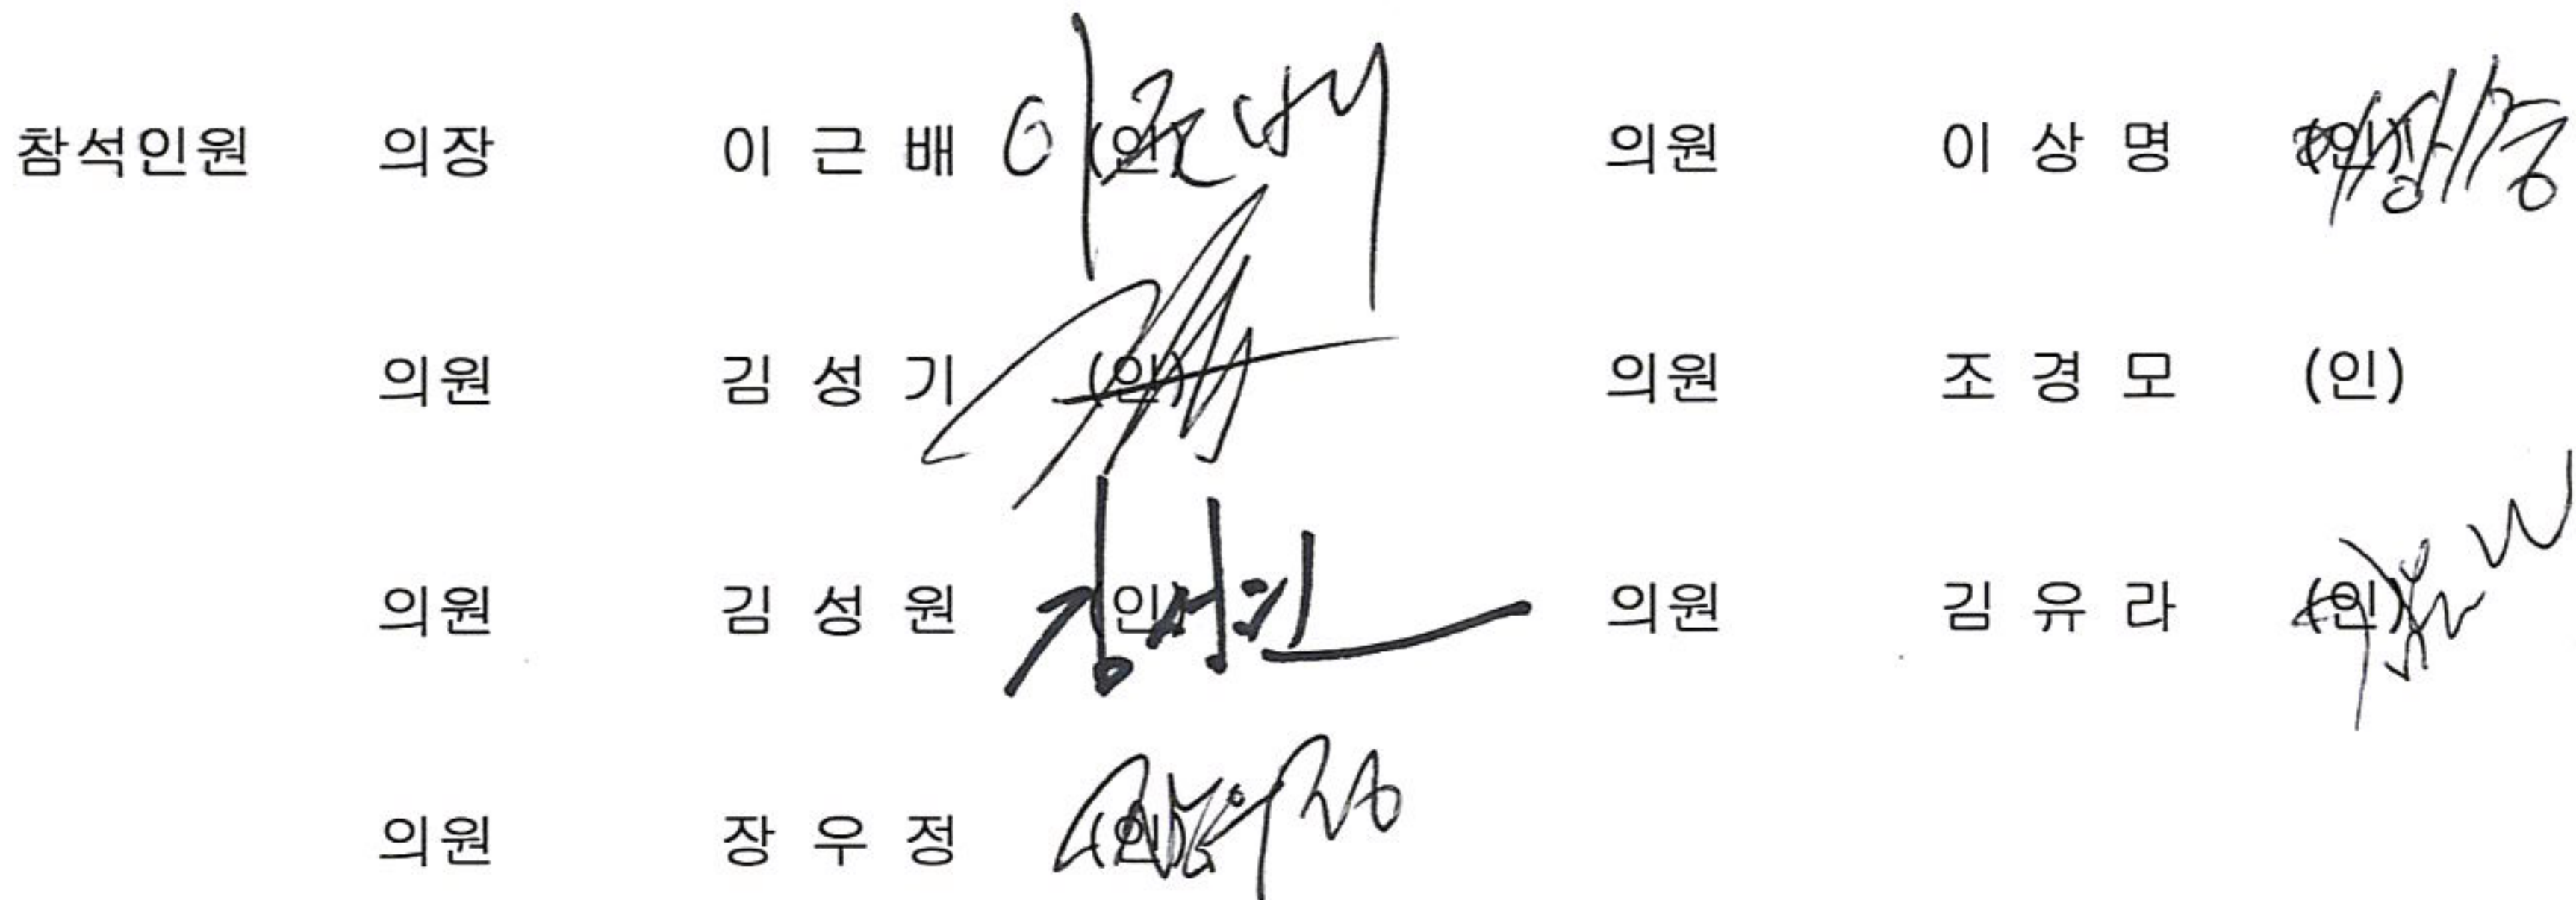 참석인원 의장 이 근 배 (인) 의원 이 상 명 (인)
의원 김 성 기 (인) 의원 조 경 모 (인)
의원 김 성 원 (인) 의원 김 유 라 (인)
의원 장 우 정 (인)